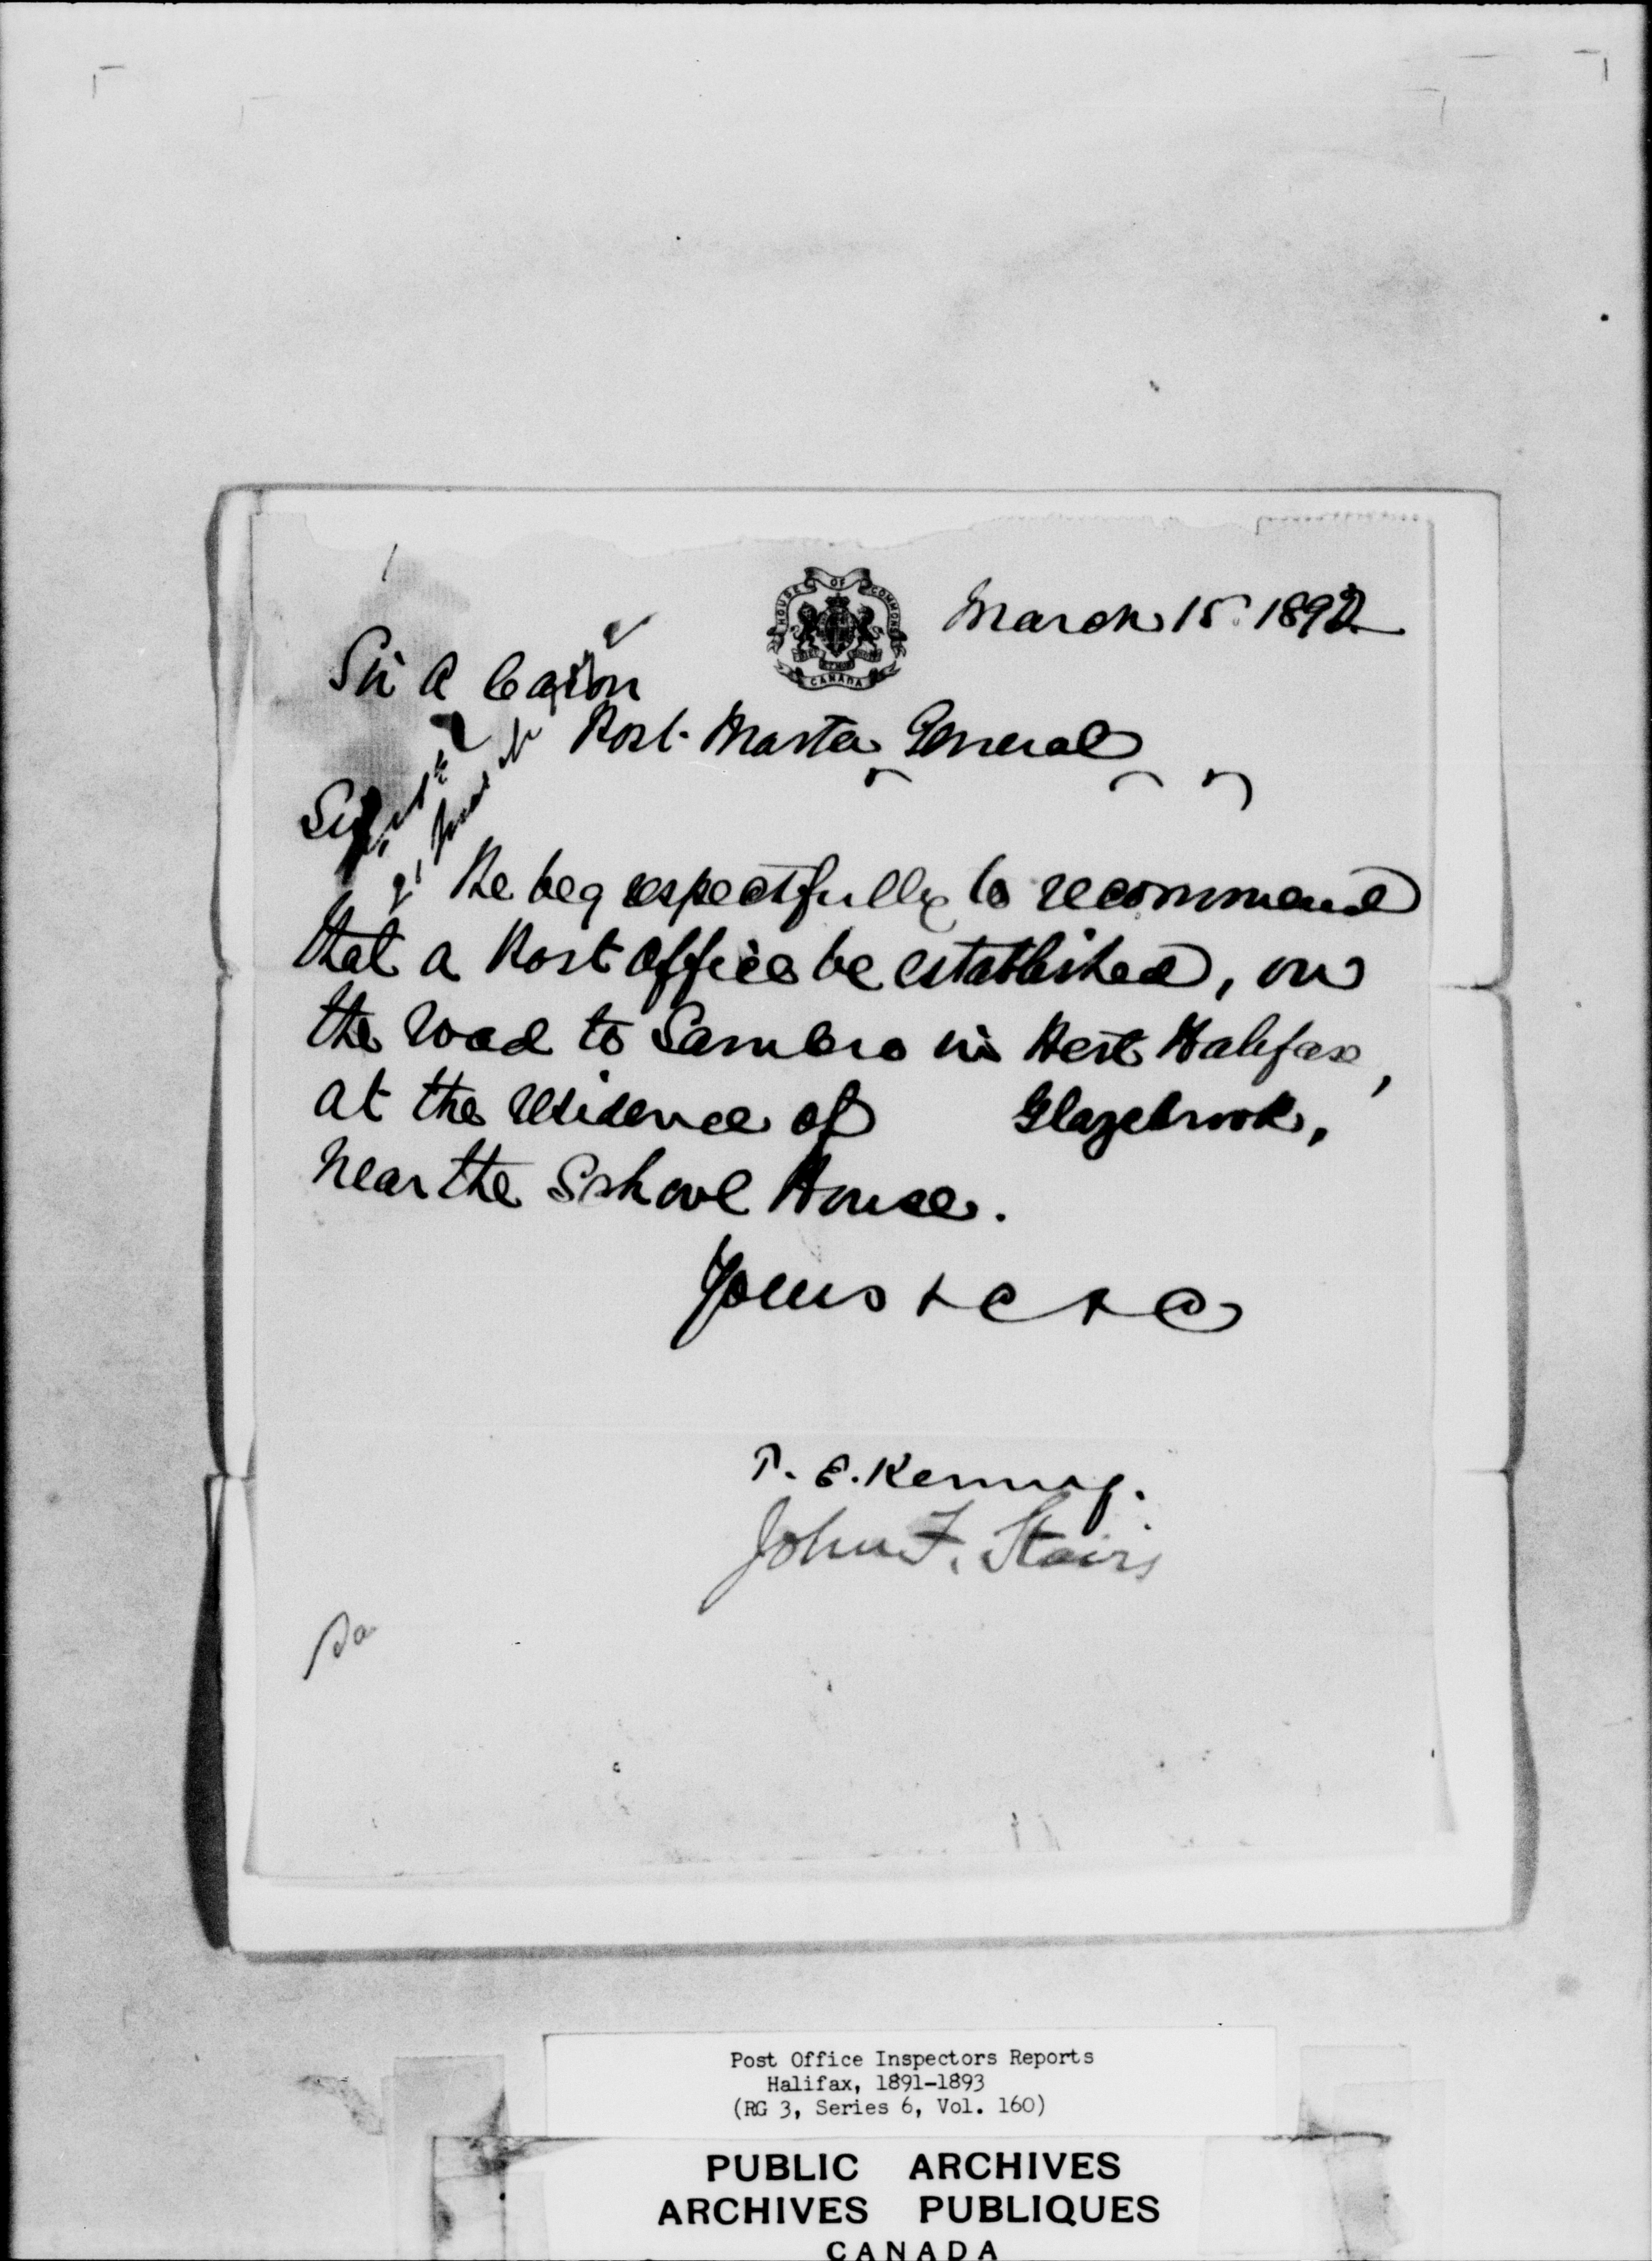 HOUSE OF COMMONS
CANADA
March 15. 1892
Sir A Caron
Post Master General
Sir
We beg respectfully to recommend
that a Post Office be established, on
the road to Sambro in West Halifax,
at the residence of Glazebrook,
near the School House.
Yours &c &c
T. E. Kenny.
John F. Stairs
Post Office Inspectors Reports
Halifax, 1891-1893
(RG 3, Series 6, Vol. 160)
PUBLIC ARCHIVES
ARCHIVES PUBLIQUES
CANADA